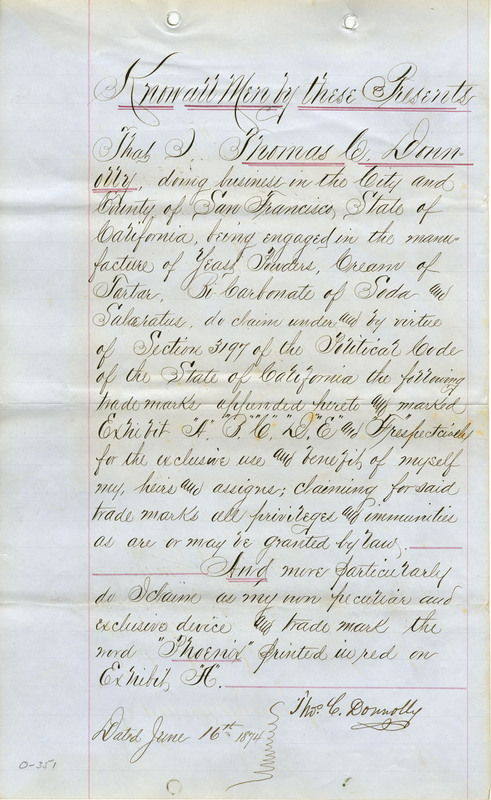 Know all Men by these Presents
That I, Thomas C. Donn-
olly, doing business in the City and
County of San Francisco, State of
California, being engaged in the manu-
facture of Yeast Powders, Cream of
Tartar, Bi Carbonate of Soda and
Salaeratus, do claim under and by virtue
of Section 3197 of the Political Code
of the State of California the following
trade marks appended hereto and marked
Exhibit "A" "B" "C" "D" "E" and F respectively
for the exclusive use and benefit of myself
my heirs and assigns; claiming for said
trade marks all privileges and immunities
as are or may be granted by law.
And more particularly
do I claim as my own peculiar and
exclusive device and trade mark the
word "Phoenix" printed in red on
Exhibit "A".
Thos. C. Donnolly
Dated June 16th 1874
0-351